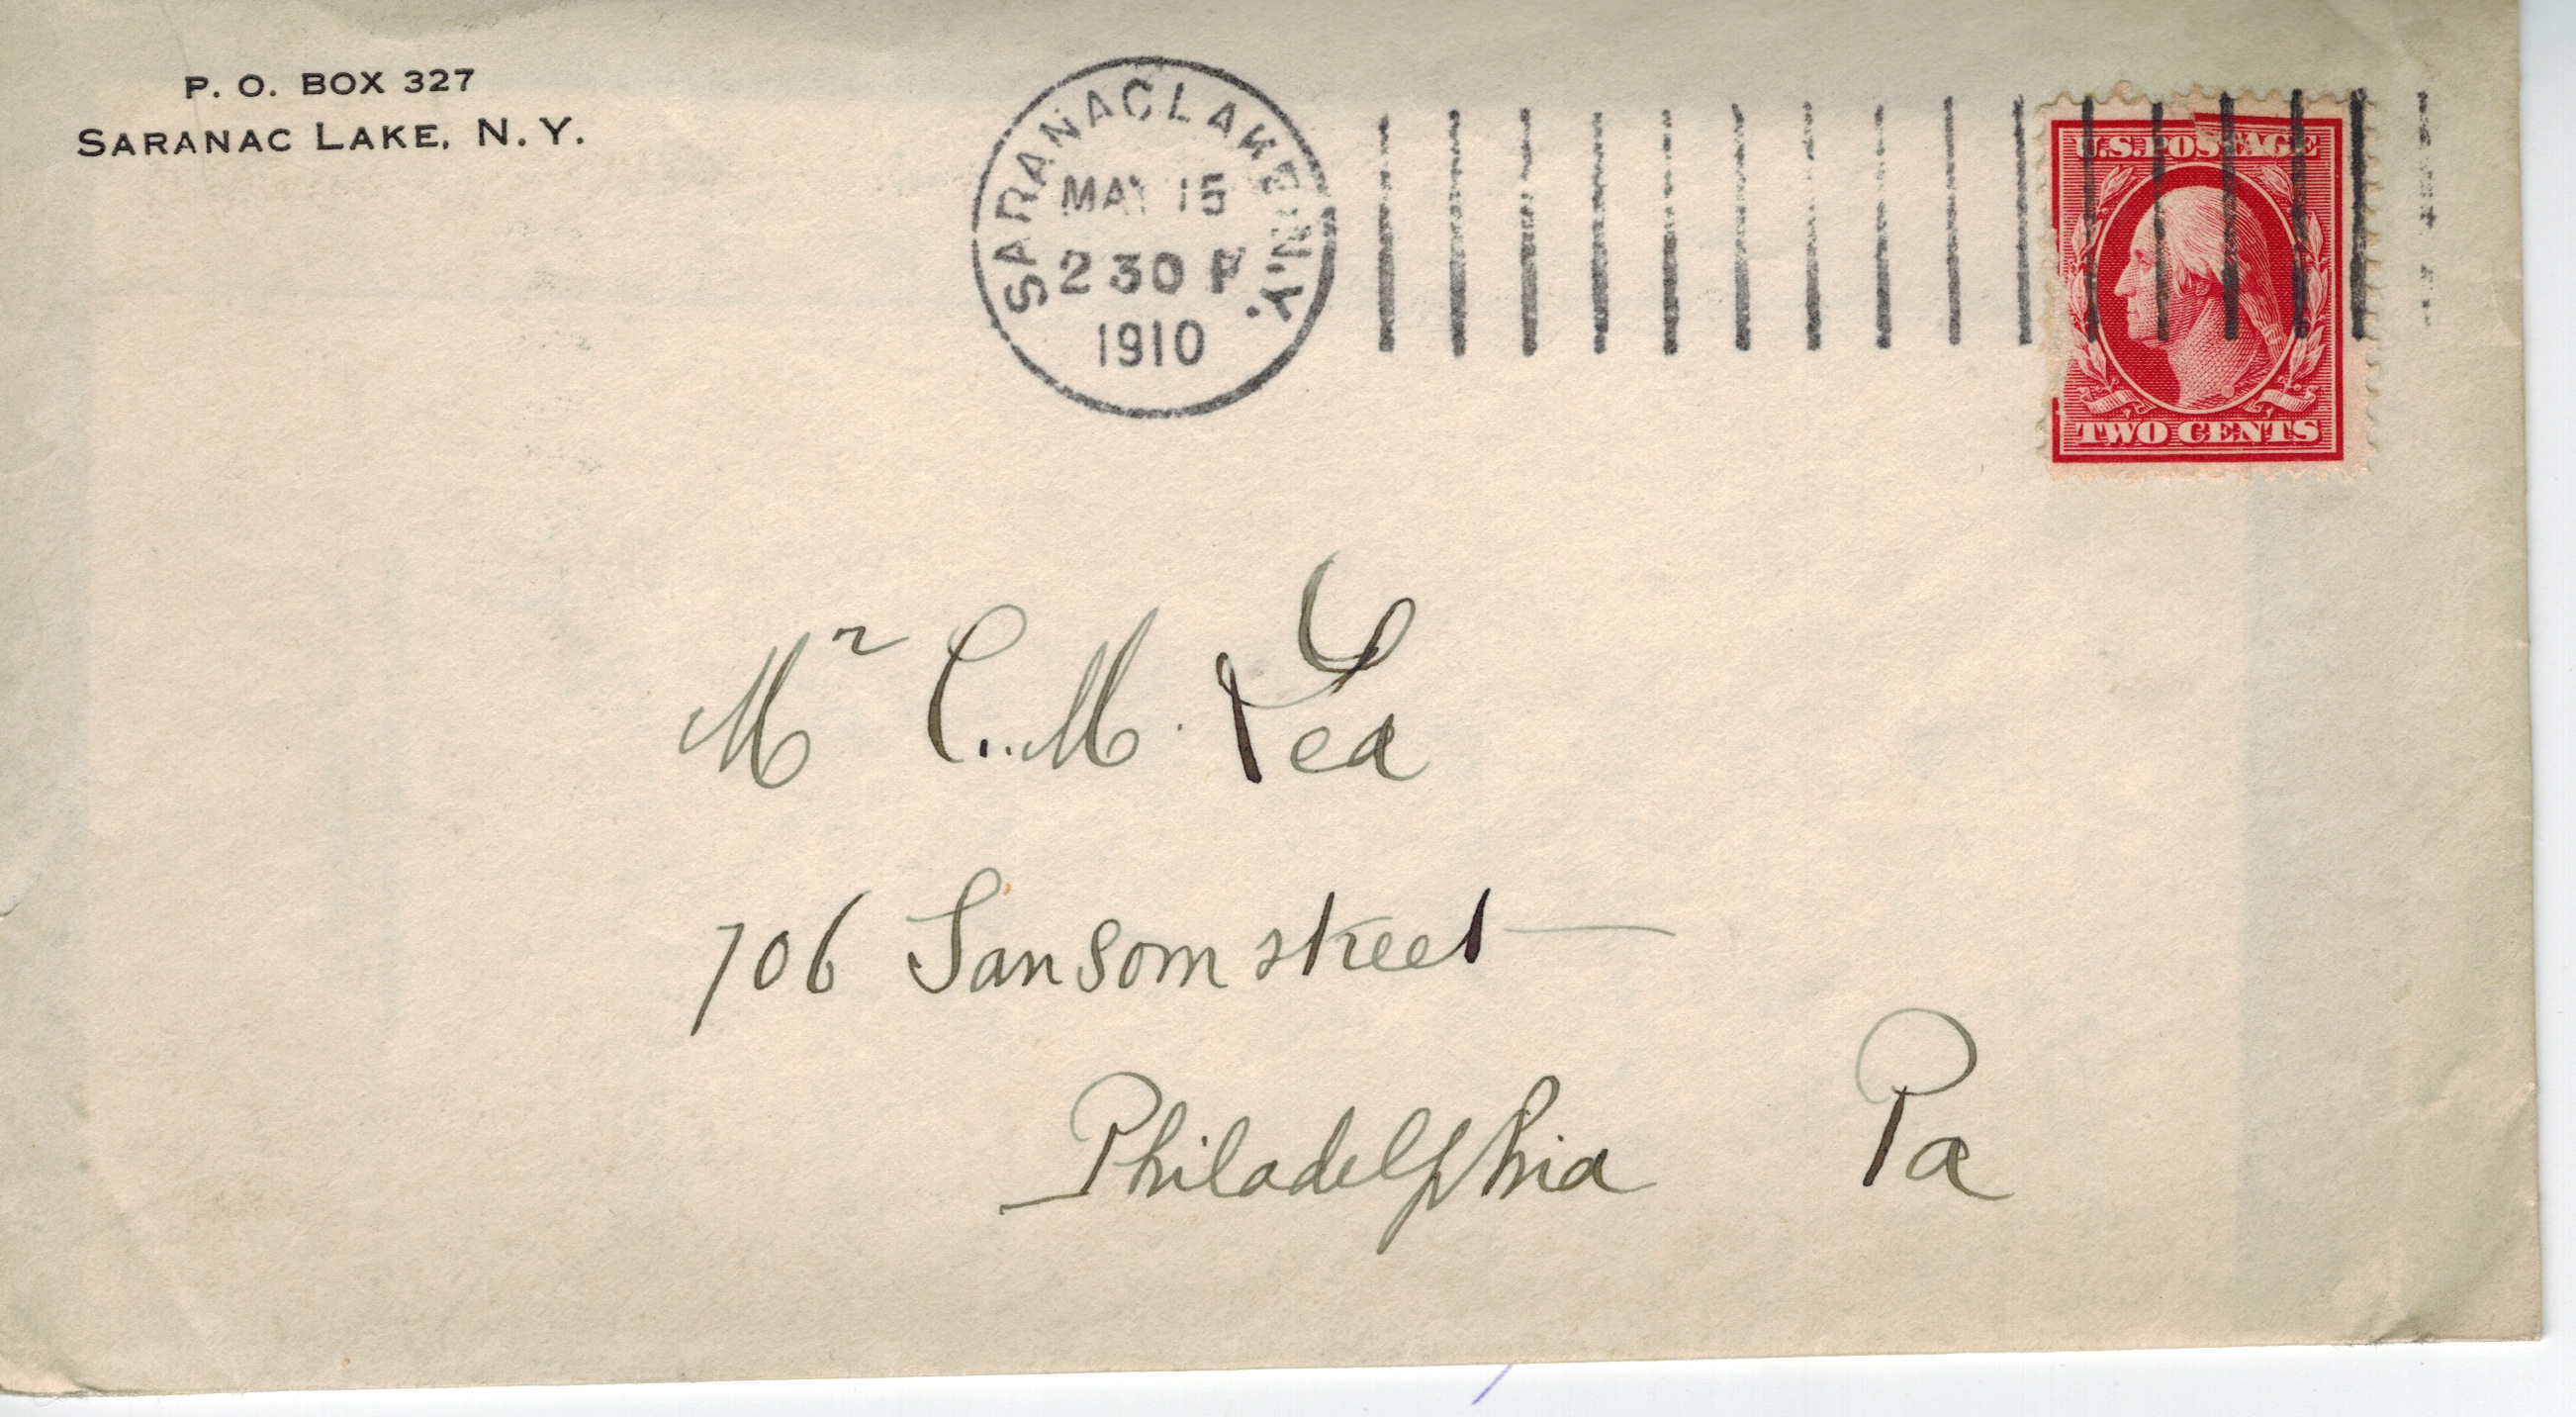 P. O. BOX 327
SARANAC LAKE, N. Y.
SARANAC LAKE, N.Y.
MAY 15
2 30 P
1910
U.S. POSTAGE
TWO CENTS
Mr C. M. Lea
706 Sansom street
Philadelphia Pa